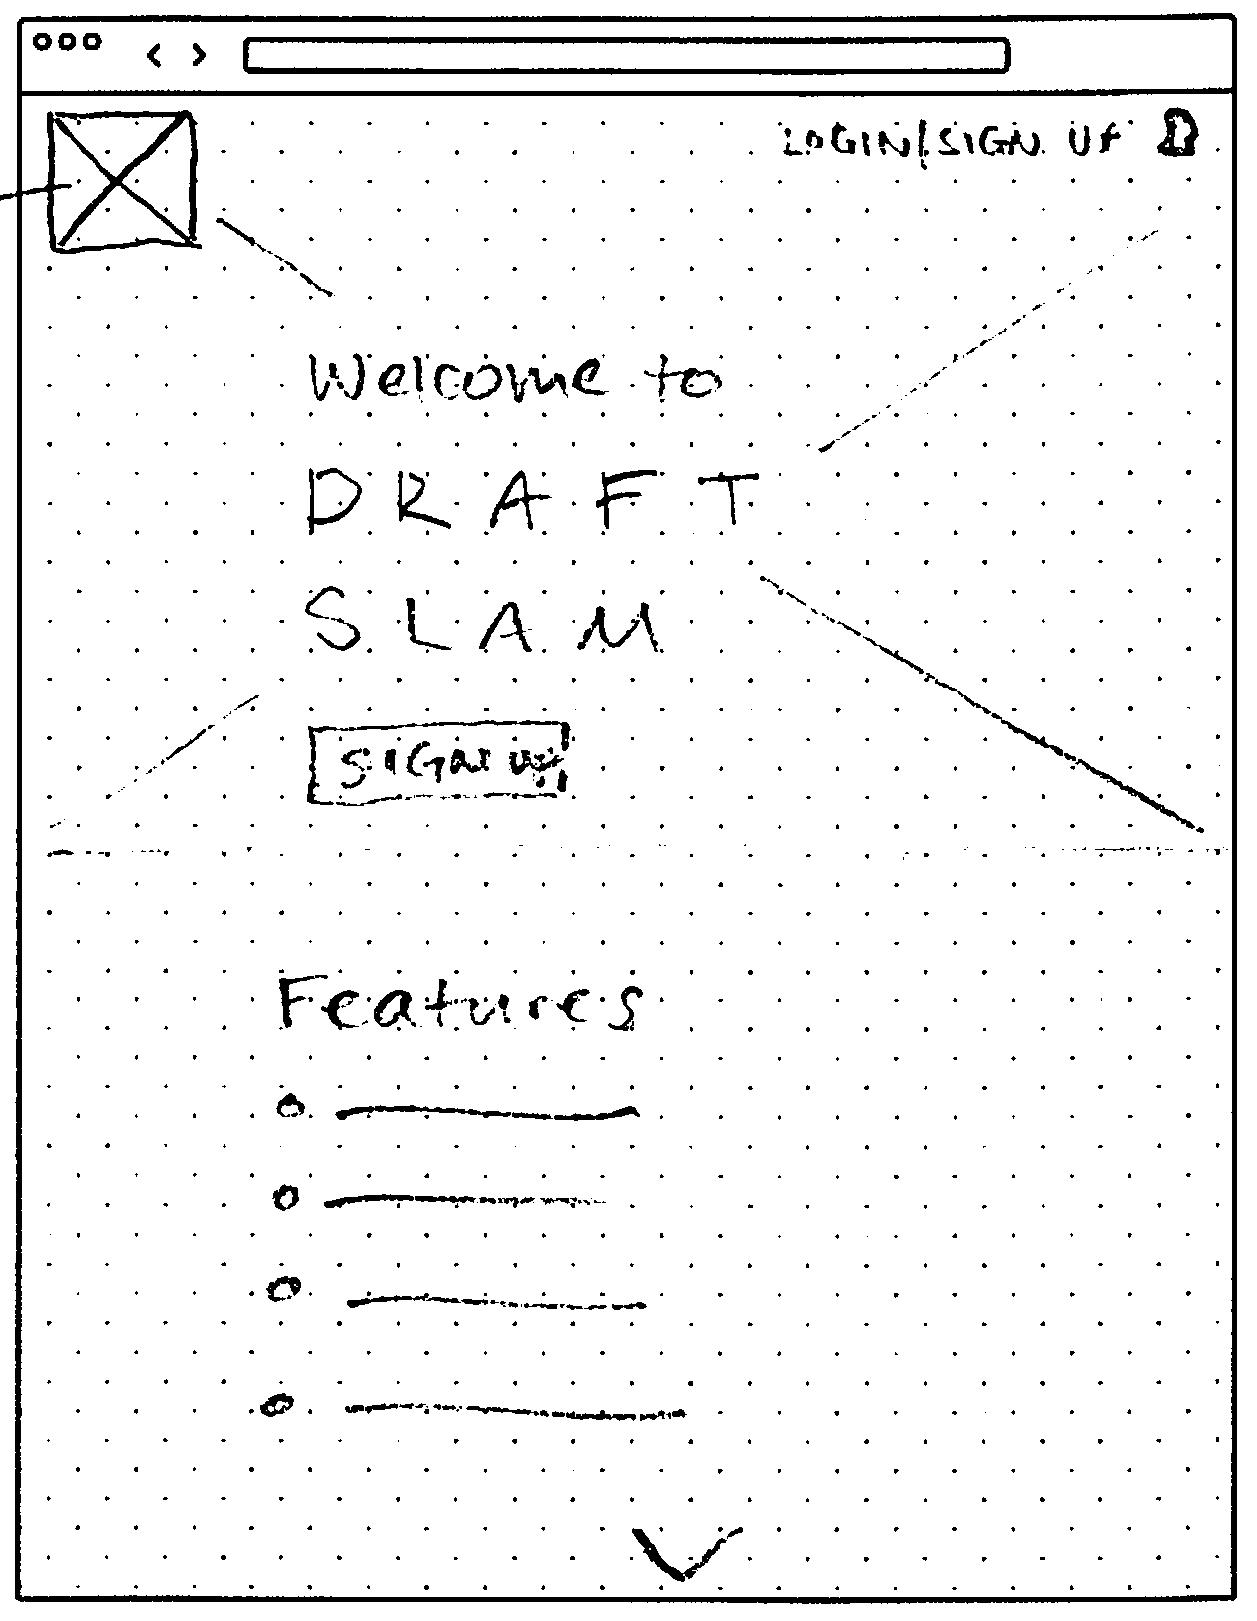 LOGIN/SIGN UP
Welcome to
DRAFT
SLAM
SIGN UP
Features